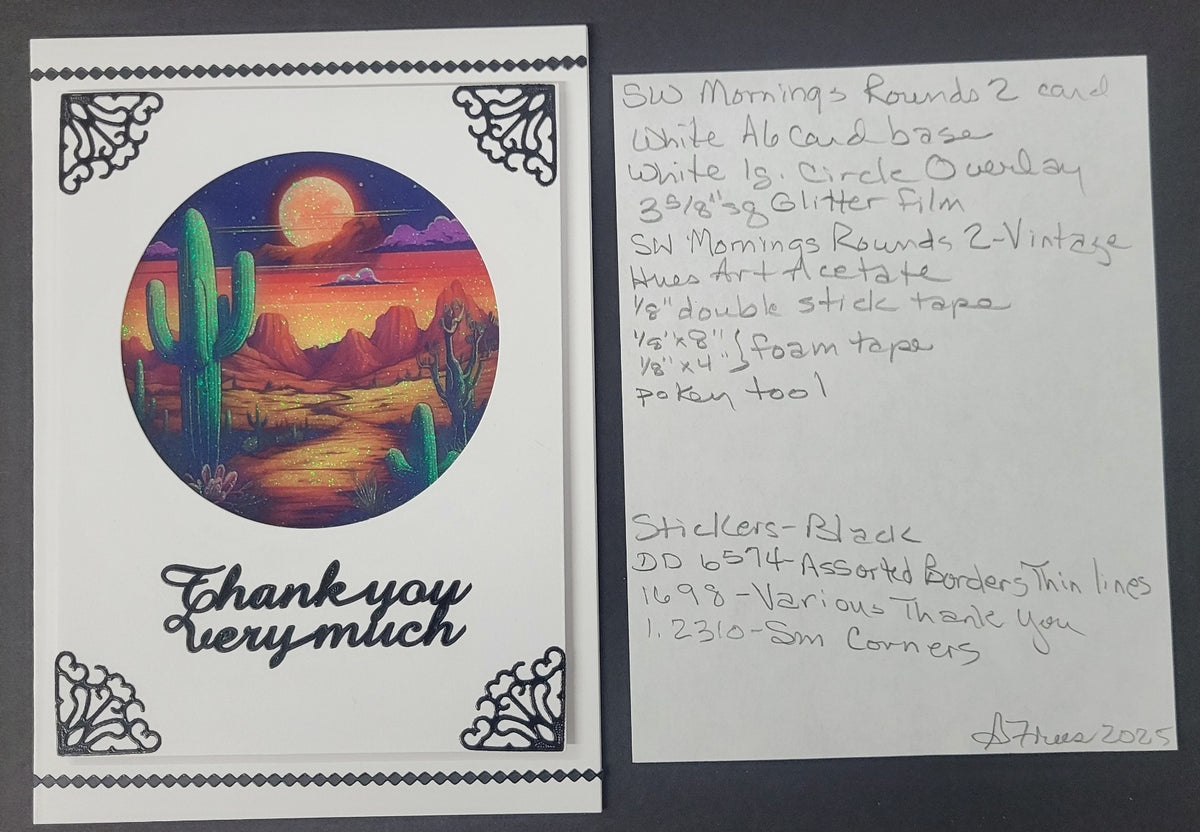 Thank you
very much
SW Mornings Rounds 2 card
White A6 Card base
White lg. Circle Overlay
3 5/8" sq Glitter Film
SW Mornings Rounds 2-Vintage
Hues Art Acetate
1/8" double stick tape
1/8" x 8" } foam tape
1/8" x 4"
pokey tool
Stickers-Black
DD 6574-Assorted Borders Thin lines
1698-Various Thank You
1.2310-Sm Corners
2025